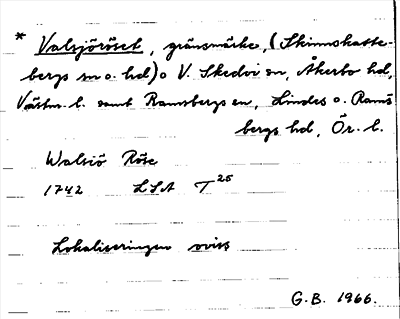 * Valsjöröset, gränsmärke, (Skinnskatte-
bergs sn o. hd) o V. Skedvi sn, Åkerbo hd,
Västm. l. samt Ramsbergs sn, Lindes o. Rams
bergs hd, Ör. l.
Walsiö Röse
1742 LSA T 25
Lokaliseringen oviss
G.B. 1966.